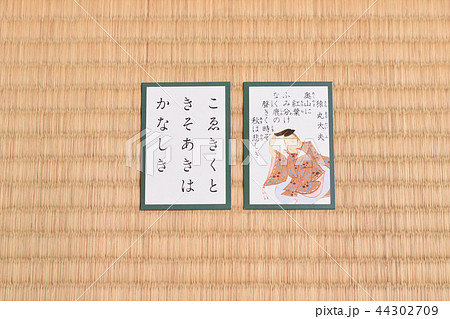 猿丸大夫
奥山に
紅葉
ふみ分け
なく鹿の
聲きく時ぞ
秋は悲しき
こゑきくと
きそあきは
かなしき
pixta.jp - 44302709